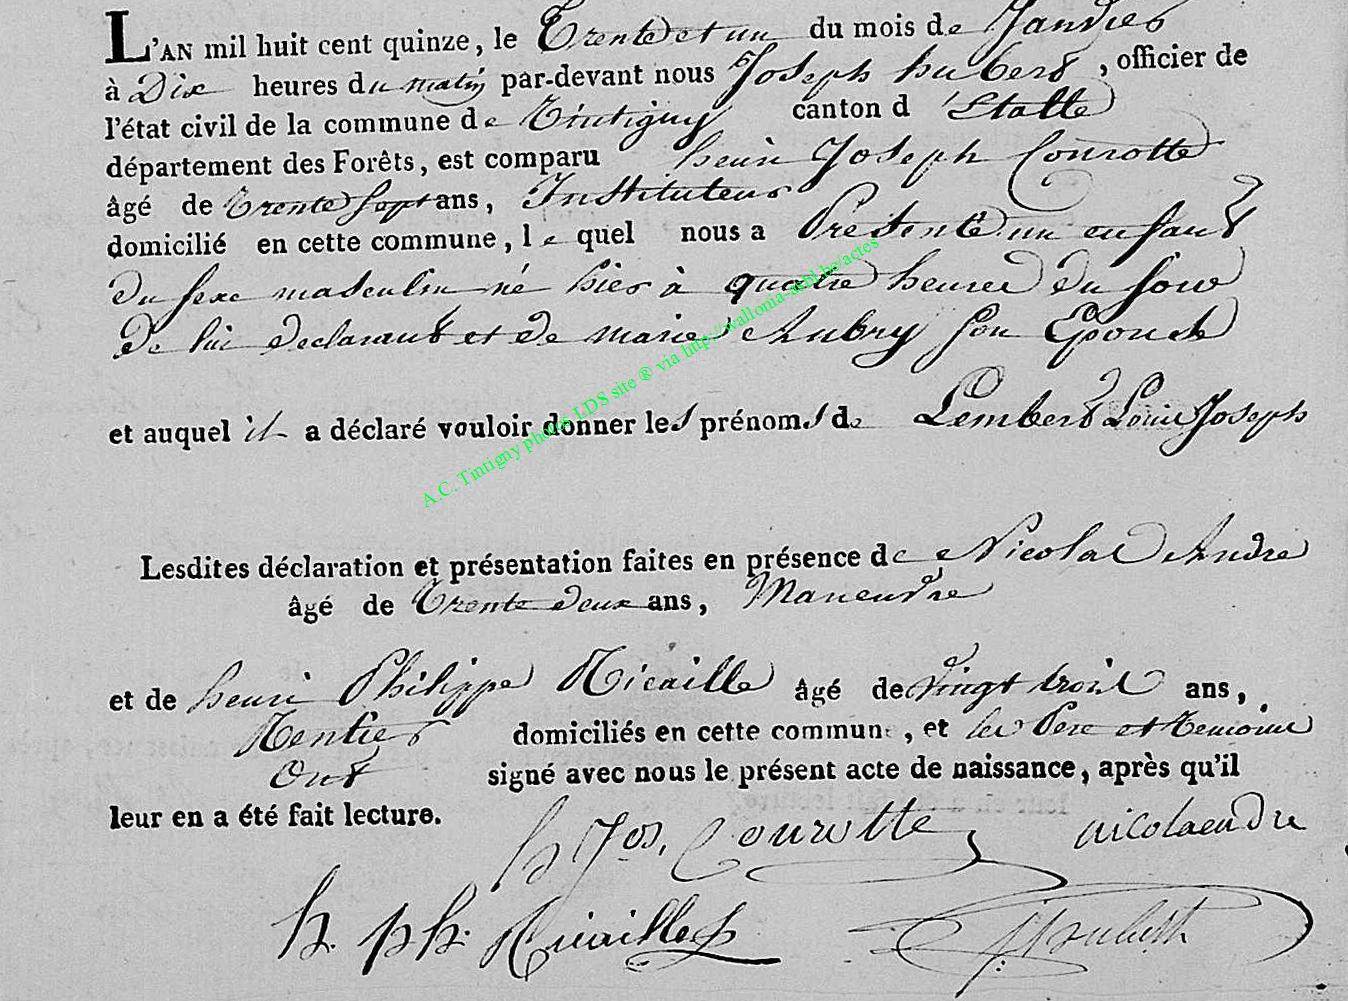 L'AN mil huit cent quinze, le Trente et un du mois de Janvier
à Dix heures du matin par-devant nous Joseph hubert, officier de
l'état civil de la commune de Tintigny canton d'Etalle
département des Forêts, est comparu henri Joseph Courotte
âgé de trente sept ans, Instituteur
domicilié en cette commune, le quel nous a Présenté un enfant
du sexe masculin né hier à quatre heures du soir
de lui declarant et de marie Aubry son Epouse
et auquel il a déclaré vouloir donner les prénoms de Lembert Louis Joseph
A.C. Tintigny photos LDS site ® via http://wallonia-asbl.be/actes
Lesdites déclaration et présentation faites en présence de Nicolas Andre
âgé de Trente deux ans, Maneuvre
et de henri Philippe Ricaille âgé de vingt trois ans,
Rentier domiciliés en cette commune, et les Pere et temoins
Ont signé avec nous le présent acte de naissance, après qu'il
leur en a été fait lecture.
h Jos. Courotte nicolaendre
h. ph. Ricaille JHubert